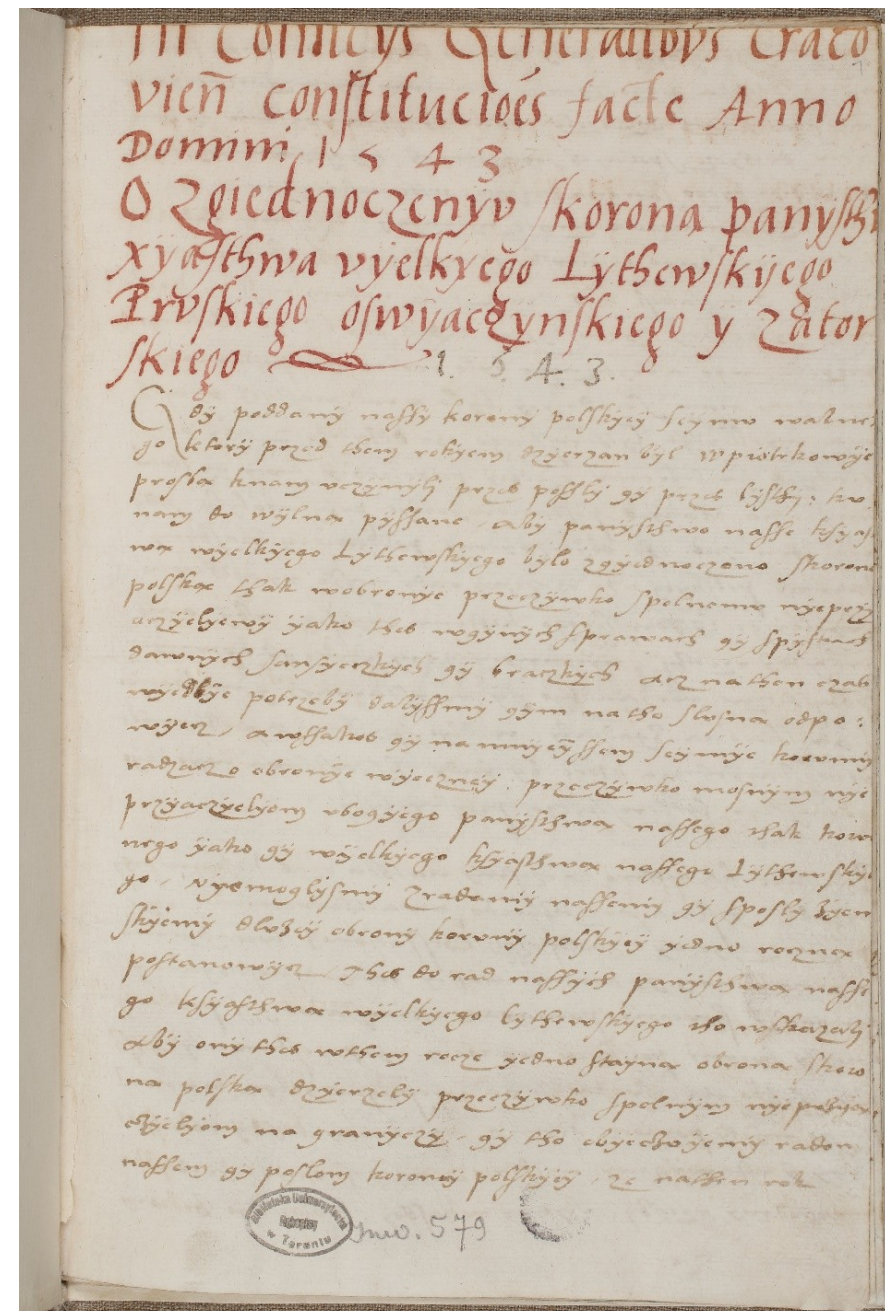 In Comicÿs Generalibvs Craco
vien̄ constitucioēs facte Anno
Domini 1543
O Zgiednoczenÿv skorona panÿsth
xÿasthwa vÿelkÿego Lÿthewskÿego
Prvskiego oswÿaczÿnskiego ÿ Zator
skiego 1.5.4.3.
Gdÿ poddanÿ nassÿ koronÿ polskÿeÿ seÿmv walne
go ktorÿ przed them rokÿem dzÿerzan bÿl wpiotrkowÿe
prosba knam vczÿnÿlj przes posslÿ gÿ przes lÿsthÿ: kv
nam do wÿlna pÿssane, abÿ panÿsthwo nasse ksÿas
wa wÿelkÿego Lÿthewskÿego bÿlo zgÿednoczono skorona
polska thak wobronÿe przeczÿwko spolnemv nÿeprzÿ
aczÿelÿewÿ ÿako thes wgÿnÿch sprawach gÿ spÿskach
dawnÿch sansÿeczkÿch gÿ braczkÿch acz nathen czas
potrzebÿ dalÿssmÿ gÿm natho slvsna odpo:
wÿecz, awssakos gÿ na seÿmÿe
radzacz o obronÿe wÿecznеÿ, przeczÿwko mosnÿm nÿe
przÿaczÿelÿom vbogÿego panÿsthwa nassego thak korv
nego ÿako gÿ wÿelkÿego ksÿasthwa nassego Lÿthewskÿe
go, nÿemoglÿsmÿ Zradamÿ nassemÿ gÿ sposlÿ Zÿem
skÿemÿ dlvzeÿ obronÿ korvnÿ polskÿeÿ ÿedno roczna
postanowÿcz Thes do rad nassÿch panÿsthwa nasse
go ksÿasthwa wÿelkÿego lÿthewskÿego tho wskazalj
abÿ onÿ thes wthem rocze ÿedno staÿna obrona skoro
na polska dzÿerzelÿ przeczÿwko spolnÿm nÿeprzÿa
czÿelÿom na granÿczÿ, gÿ tho obÿeczvÿemÿ radom
nassem gÿ poslom koronÿ polskÿeÿ, ze nathen rok
Biblioteka Uniwersytecka
Rękopisy
w Toruniu
Inw. 579